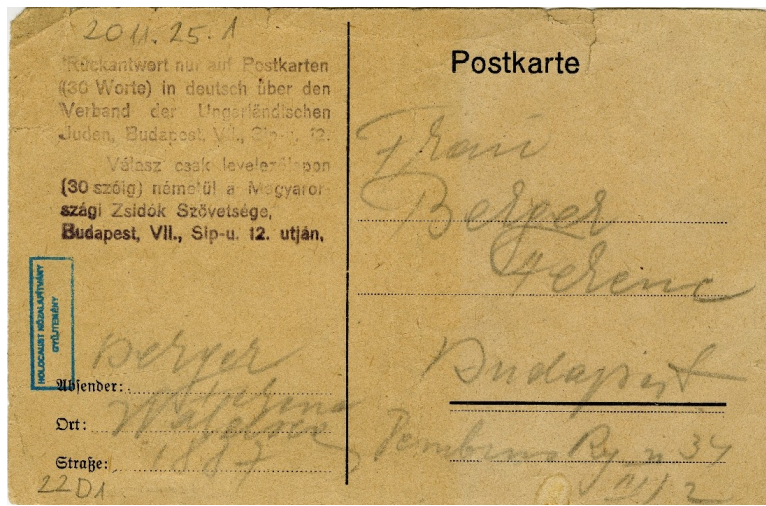 2011.25.1
Rückantwort nur auf Postkarten
(30 Worte) in deutsch über den
Verband der Ungarländischen
Juden, Budapest, VII., Sip-u. 12.
Válasz csak levelezőlapon
(30 szóig) németül a Magyaror-
szági Zsidók Szövetsége,
Budapest, VII., Sip-u. 12. utján.
HOLOCAUST KÖZALAPÍTVÁNY
GYŰJTEMÉNY
Berger
Absender:
Ort:
Straße:
22D1
Postkarte
Frau
Berger
Ferenc
Budapest
34